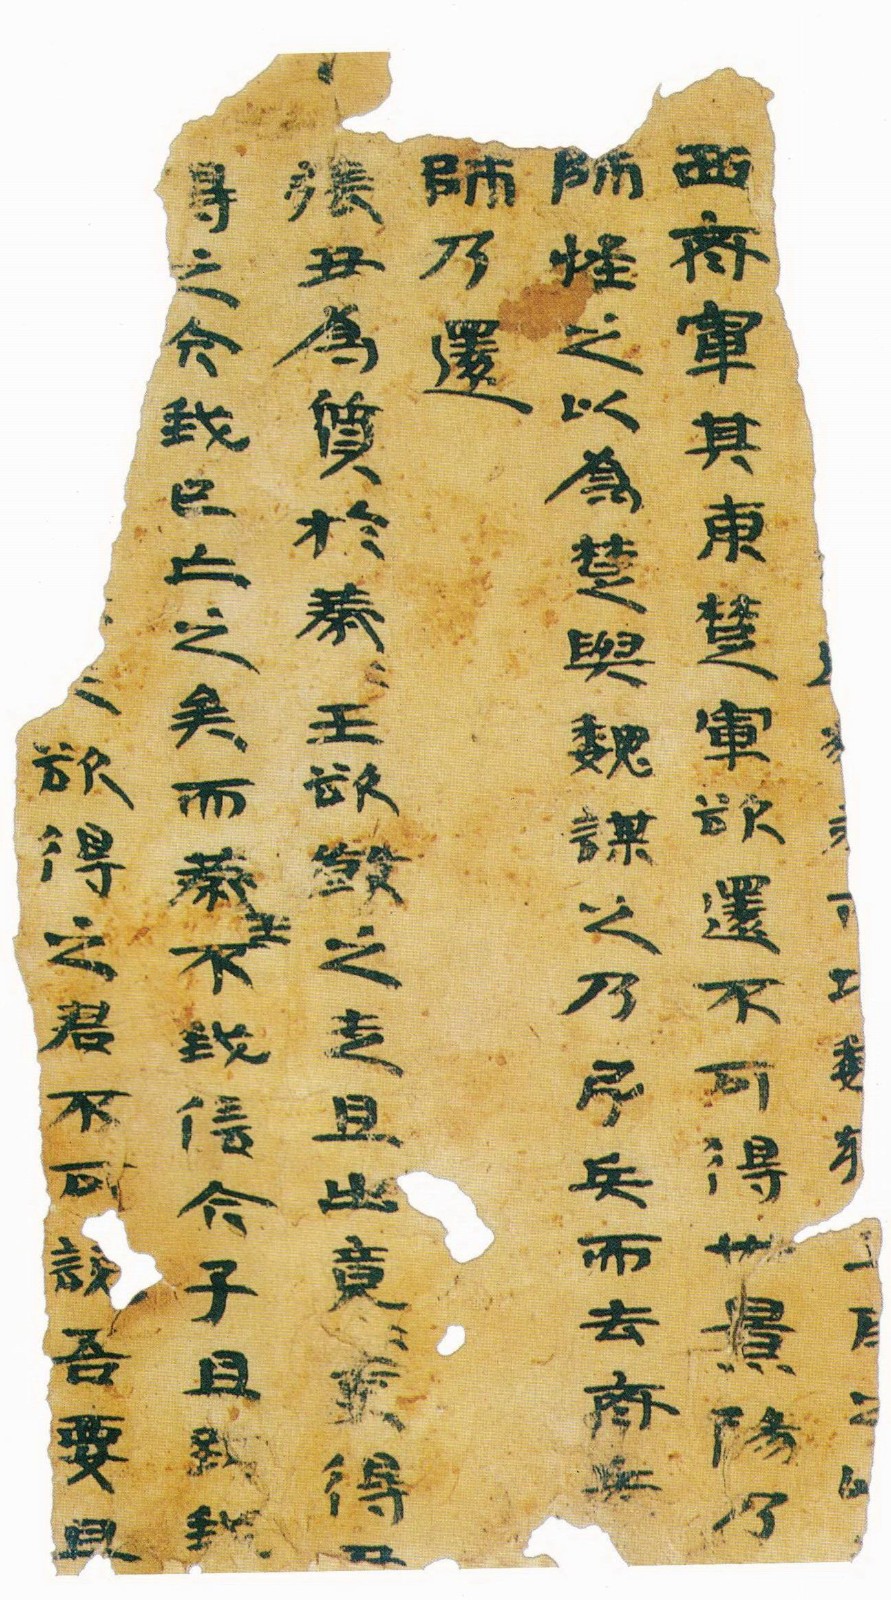 攻魏
西齊軍其東楚軍欲還不可得景陽乃
師怪之以為楚與魏謀之乃引兵而去齊兵
師乃還
張丑為質於燕〻王欲殺之走且出竟〻吏得丑
得之今我已亡之矣而燕王不我信今子且致我
之欲得之君不可說吾要且